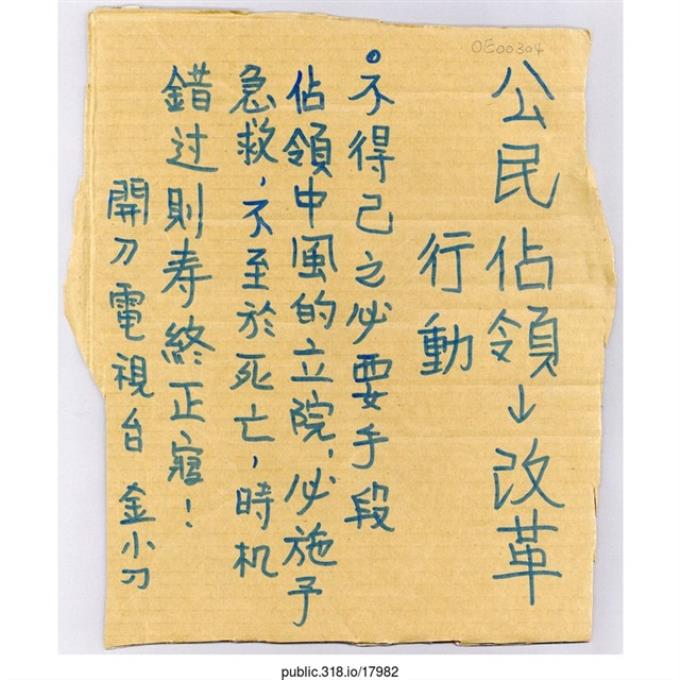 OE00304
公民佔領↓改革
行動
。不得己之必要手段
佔領中風的立院，必施予
急救，不至於死亡，時机
錯过則寿終正寢！
開刀電視台 金小刀
public.318.io/17982